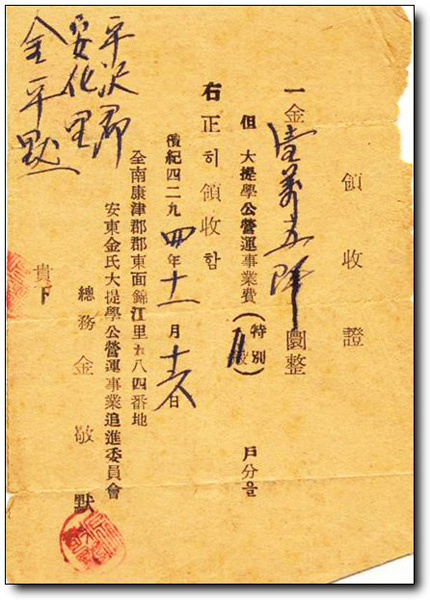 領收證
一金壹萬五阡圜整
但 大提學公營運事業費(特別) 戶分을
右正히領收함
檀紀四二九四年十一月十日
全南康津郡郡東面錦江里五八四番地
安東金氏大提學公營運事業追進委員會
總務 金敬默
貴下
平沢郡
安化里
金平默